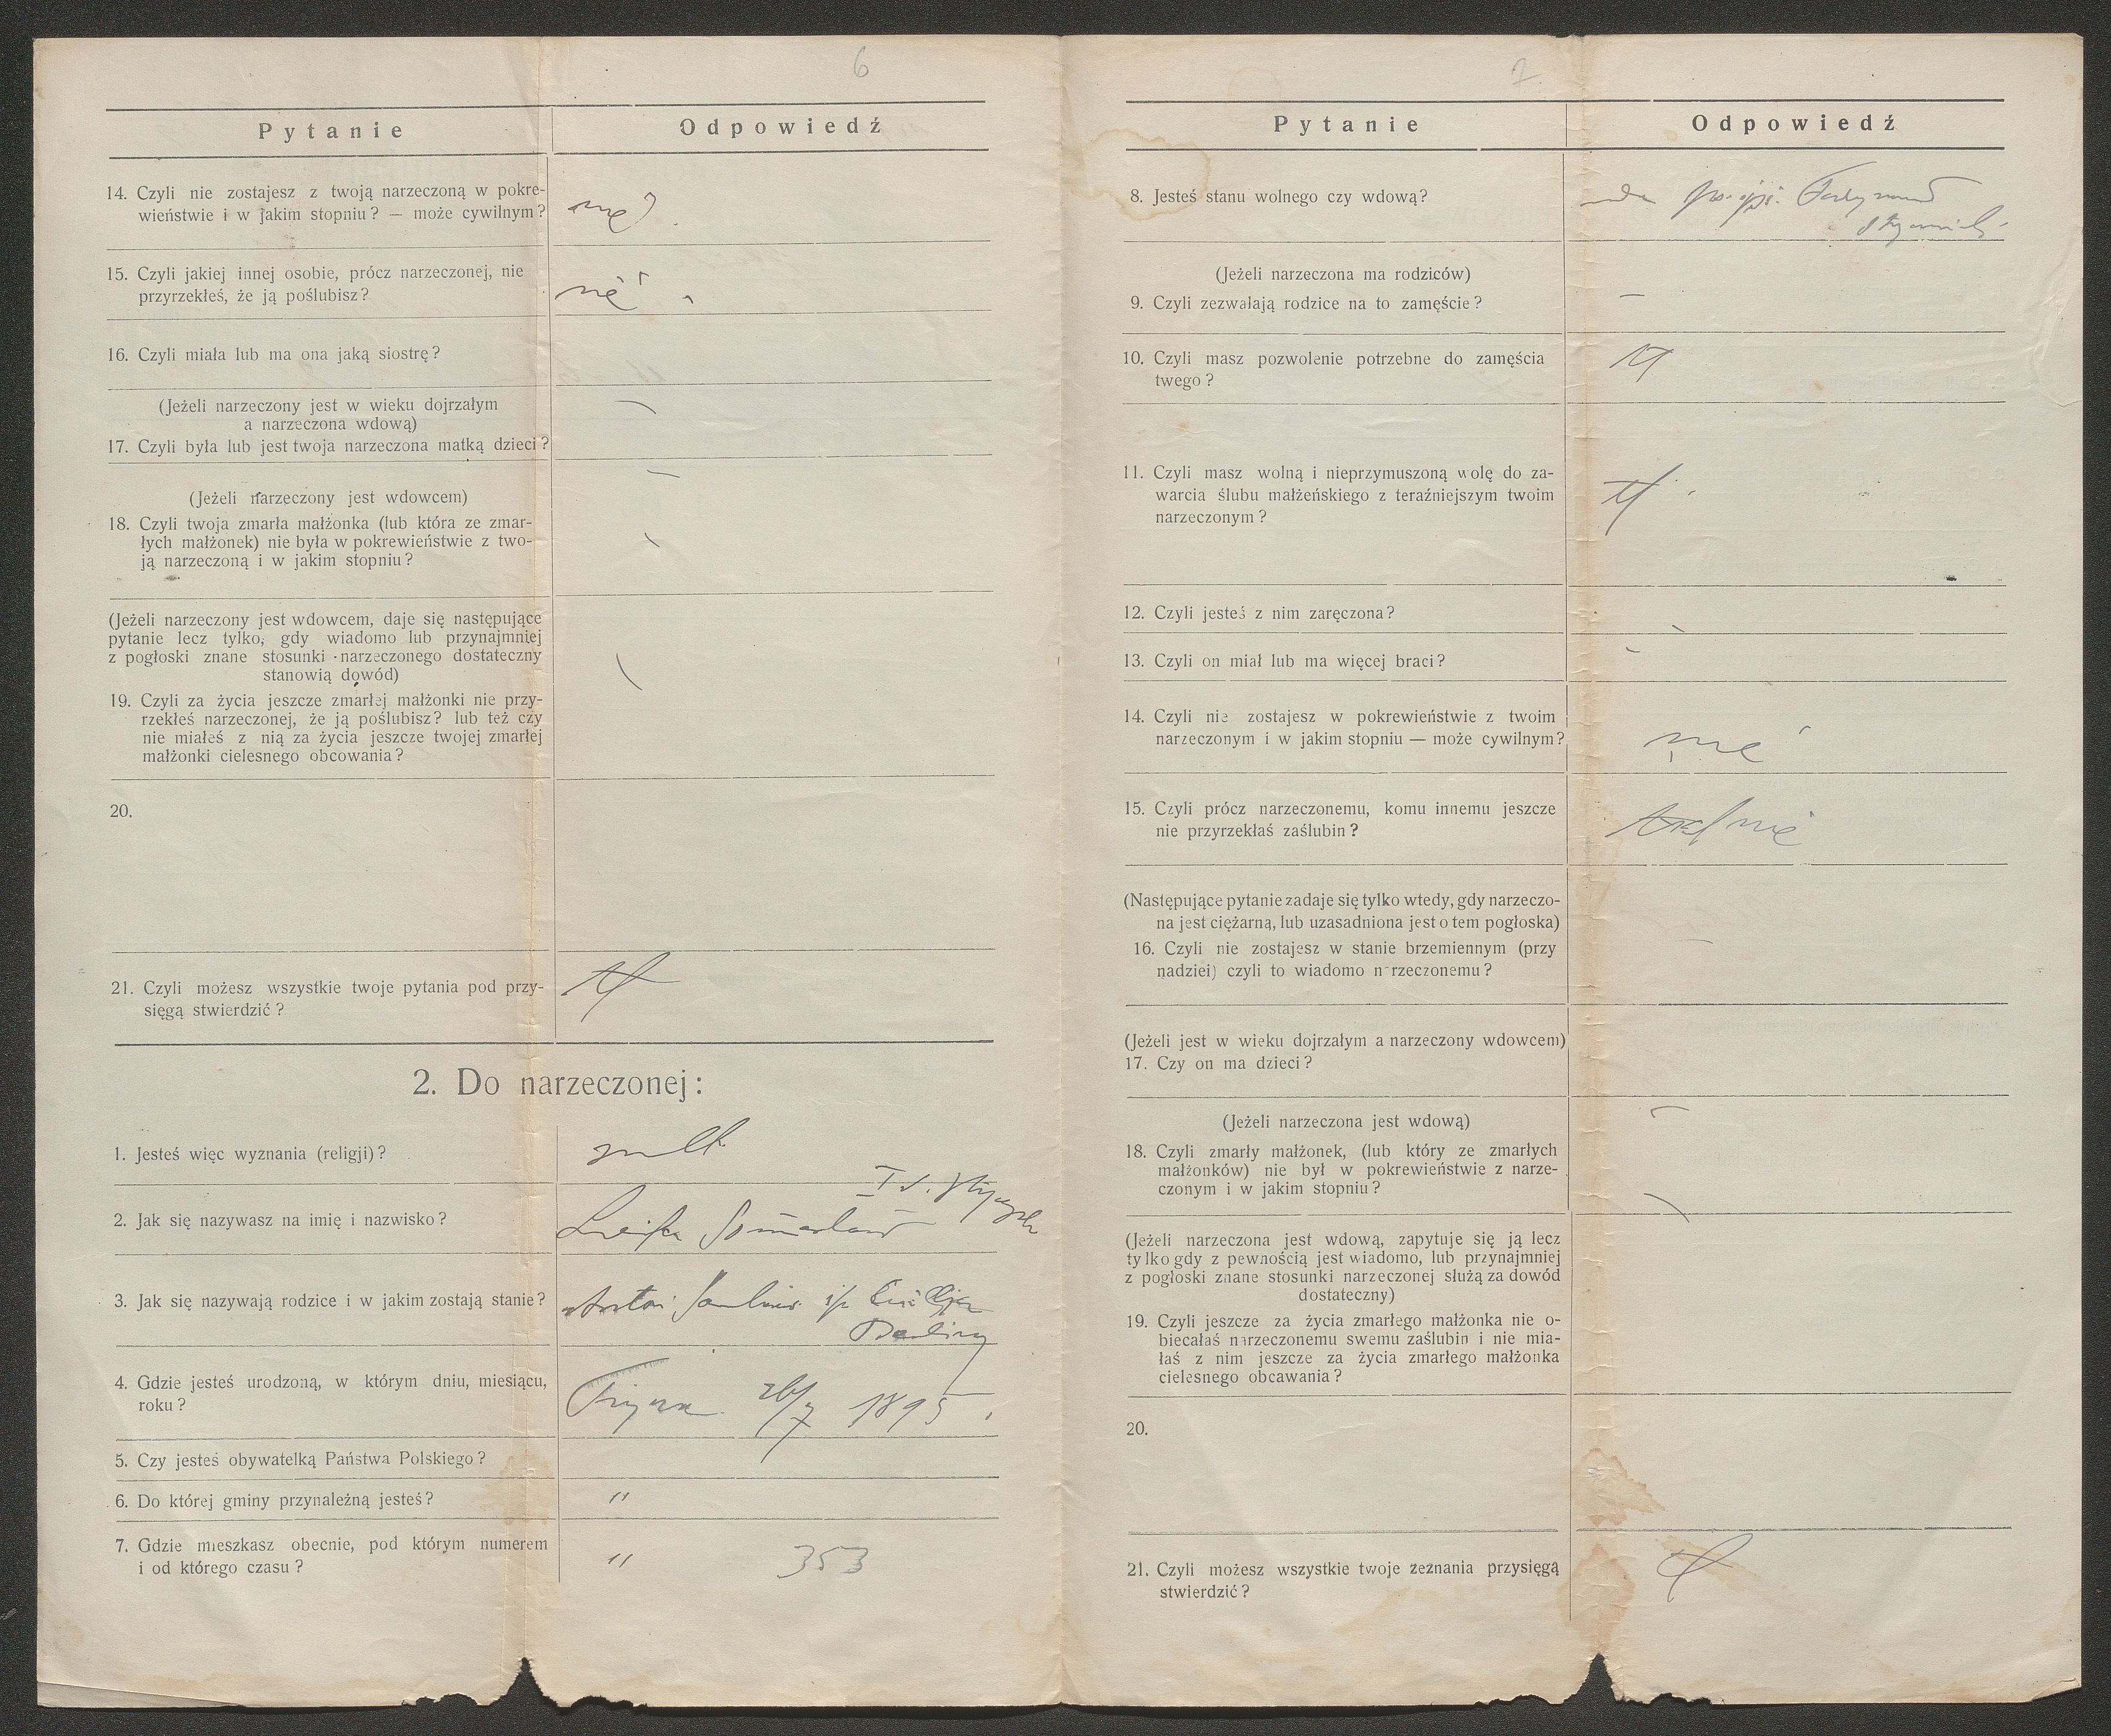 6
Pytanie
Odpowiedź
14. Czyli nie zostajesz z twoją narzeczoną w pokre-
wieństwie i w jakim stopniu? — może cywilnym?
nie
15. Czyli jakiej innej osobie, prócz narzeczonej, nie
przyrzekłeś, że ją poślubisz?
nie
16. Czyli miała lub ma ona jaką siostrę?
(Jeżeli narzeczony jest w wieku dojrzałym
a narzeczona wdową)
17. Czyli była lub jest twoja narzeczona matką dzieci?
(Jeżeli narzeczony jest wdowcem)
18. Czyli twoja zmarła małżonka (lub która ze zmar-
łych małżonek) nie była w pokrewieństwie z two-
ją narzeczoną i w jakim stopniu?
(Jeżeli narzeczony jest wdowcem, daje się następujące
pytanie lecz tylko, gdy wiadomo lub przynajmniej
z pogłoski znane stosunki narzeczonego dostateczny
stanowią dowód)
19. Czyli za życia jeszcze zmarłej małżonki nie przy-
rzekłeś narzeczonej, że ją poślubisz? lub też czy
nie miałeś z nią za życia jeszcze twojej zmarłej
małżonki cielesnego obcowania?
20.
21. Czyli możesz wszystkie twoje pytania pod przy-
sięgą stwierdzić?
2. Do narzeczonej:
1. Jesteś więc wyznania (religji)?
2. Jak się nazywasz na imię i nazwisko?
3. Jak się nazywają rodzice i w jakim zostają stanie?
4. Gdzie jesteś urodzoną, w którym dniu, miesiącu,
roku?
26/7 1895
5. Czy jesteś obywatelką Państwa Polskiego?
6. Do której gminy przynależną jesteś?
"
7. Gdzie mieszkasz obecnie, pod którym numerem
i od którego czasu?
" 353
7
Pytanie
Odpowiedź
8. Jesteś stanu wolnego czy wdową?
(Jeżeli narzeczona ma rodziców)
9. Czyli zezwalają rodzice na to zamęście?
—
10. Czyli masz pozwolenie potrzebne do zamęścia
twego?
11. Czyli masz wolną i nieprzymuszoną wolę do za-
warcia ślubu małżeńskiego z teraźniejszym twoim
narzeczonym?
12. Czyli jesteś z nim zaręczona?
13. Czyli on miał lub ma więcej braci?
14. Czyli nie zostajesz w pokrewieństwie z twoim
narzeczonym i w jakim stopniu — może cywilnym?
nie
15. Czyli prócz narzeczonemu, komu innemu jeszcze
nie przyrzekłaś zaślubin?
nie
(Następujące pytanie zadaje się tylko wtedy, gdy narzeczo-
na jest ciężarną, lub uzasadniona jest o tem pogłoska)
16. Czyli nie zostajesz w stanie brzemiennym (przy
nadziei) czyli to wiadomo narzeczonemu?
(Jeżeli jest w wieku dojrzałym a narzeczony wdowcem)
17. Czy on ma dzieci?
(Jeżeli narzeczona jest wdową)
18. Czyli zmarły małżonek, (lub który ze zmarłych
małżonków) nie był w pokrewieństwie z narze-
czonym i w jakim stopniu?
(Jeżeli narzeczona jest wdową, zapytuje się ją lecz
tylko gdy z pewnością jest wiadomo, lub przynajmniej
z pogłoski znane stosunki narzeczonej służą za dowód
dostateczny)
19. Czyli jeszcze za życia zmarłego małżonka nie o-
biecałaś narzeczonemu swemu zaślubin i nie mia-
łaś z nim jeszcze za życia zmarłego małżonka
cielesnego obcawania?
20.
21. Czyli możesz wszystkie twoje zeznania przysięgą
stwierdzić?